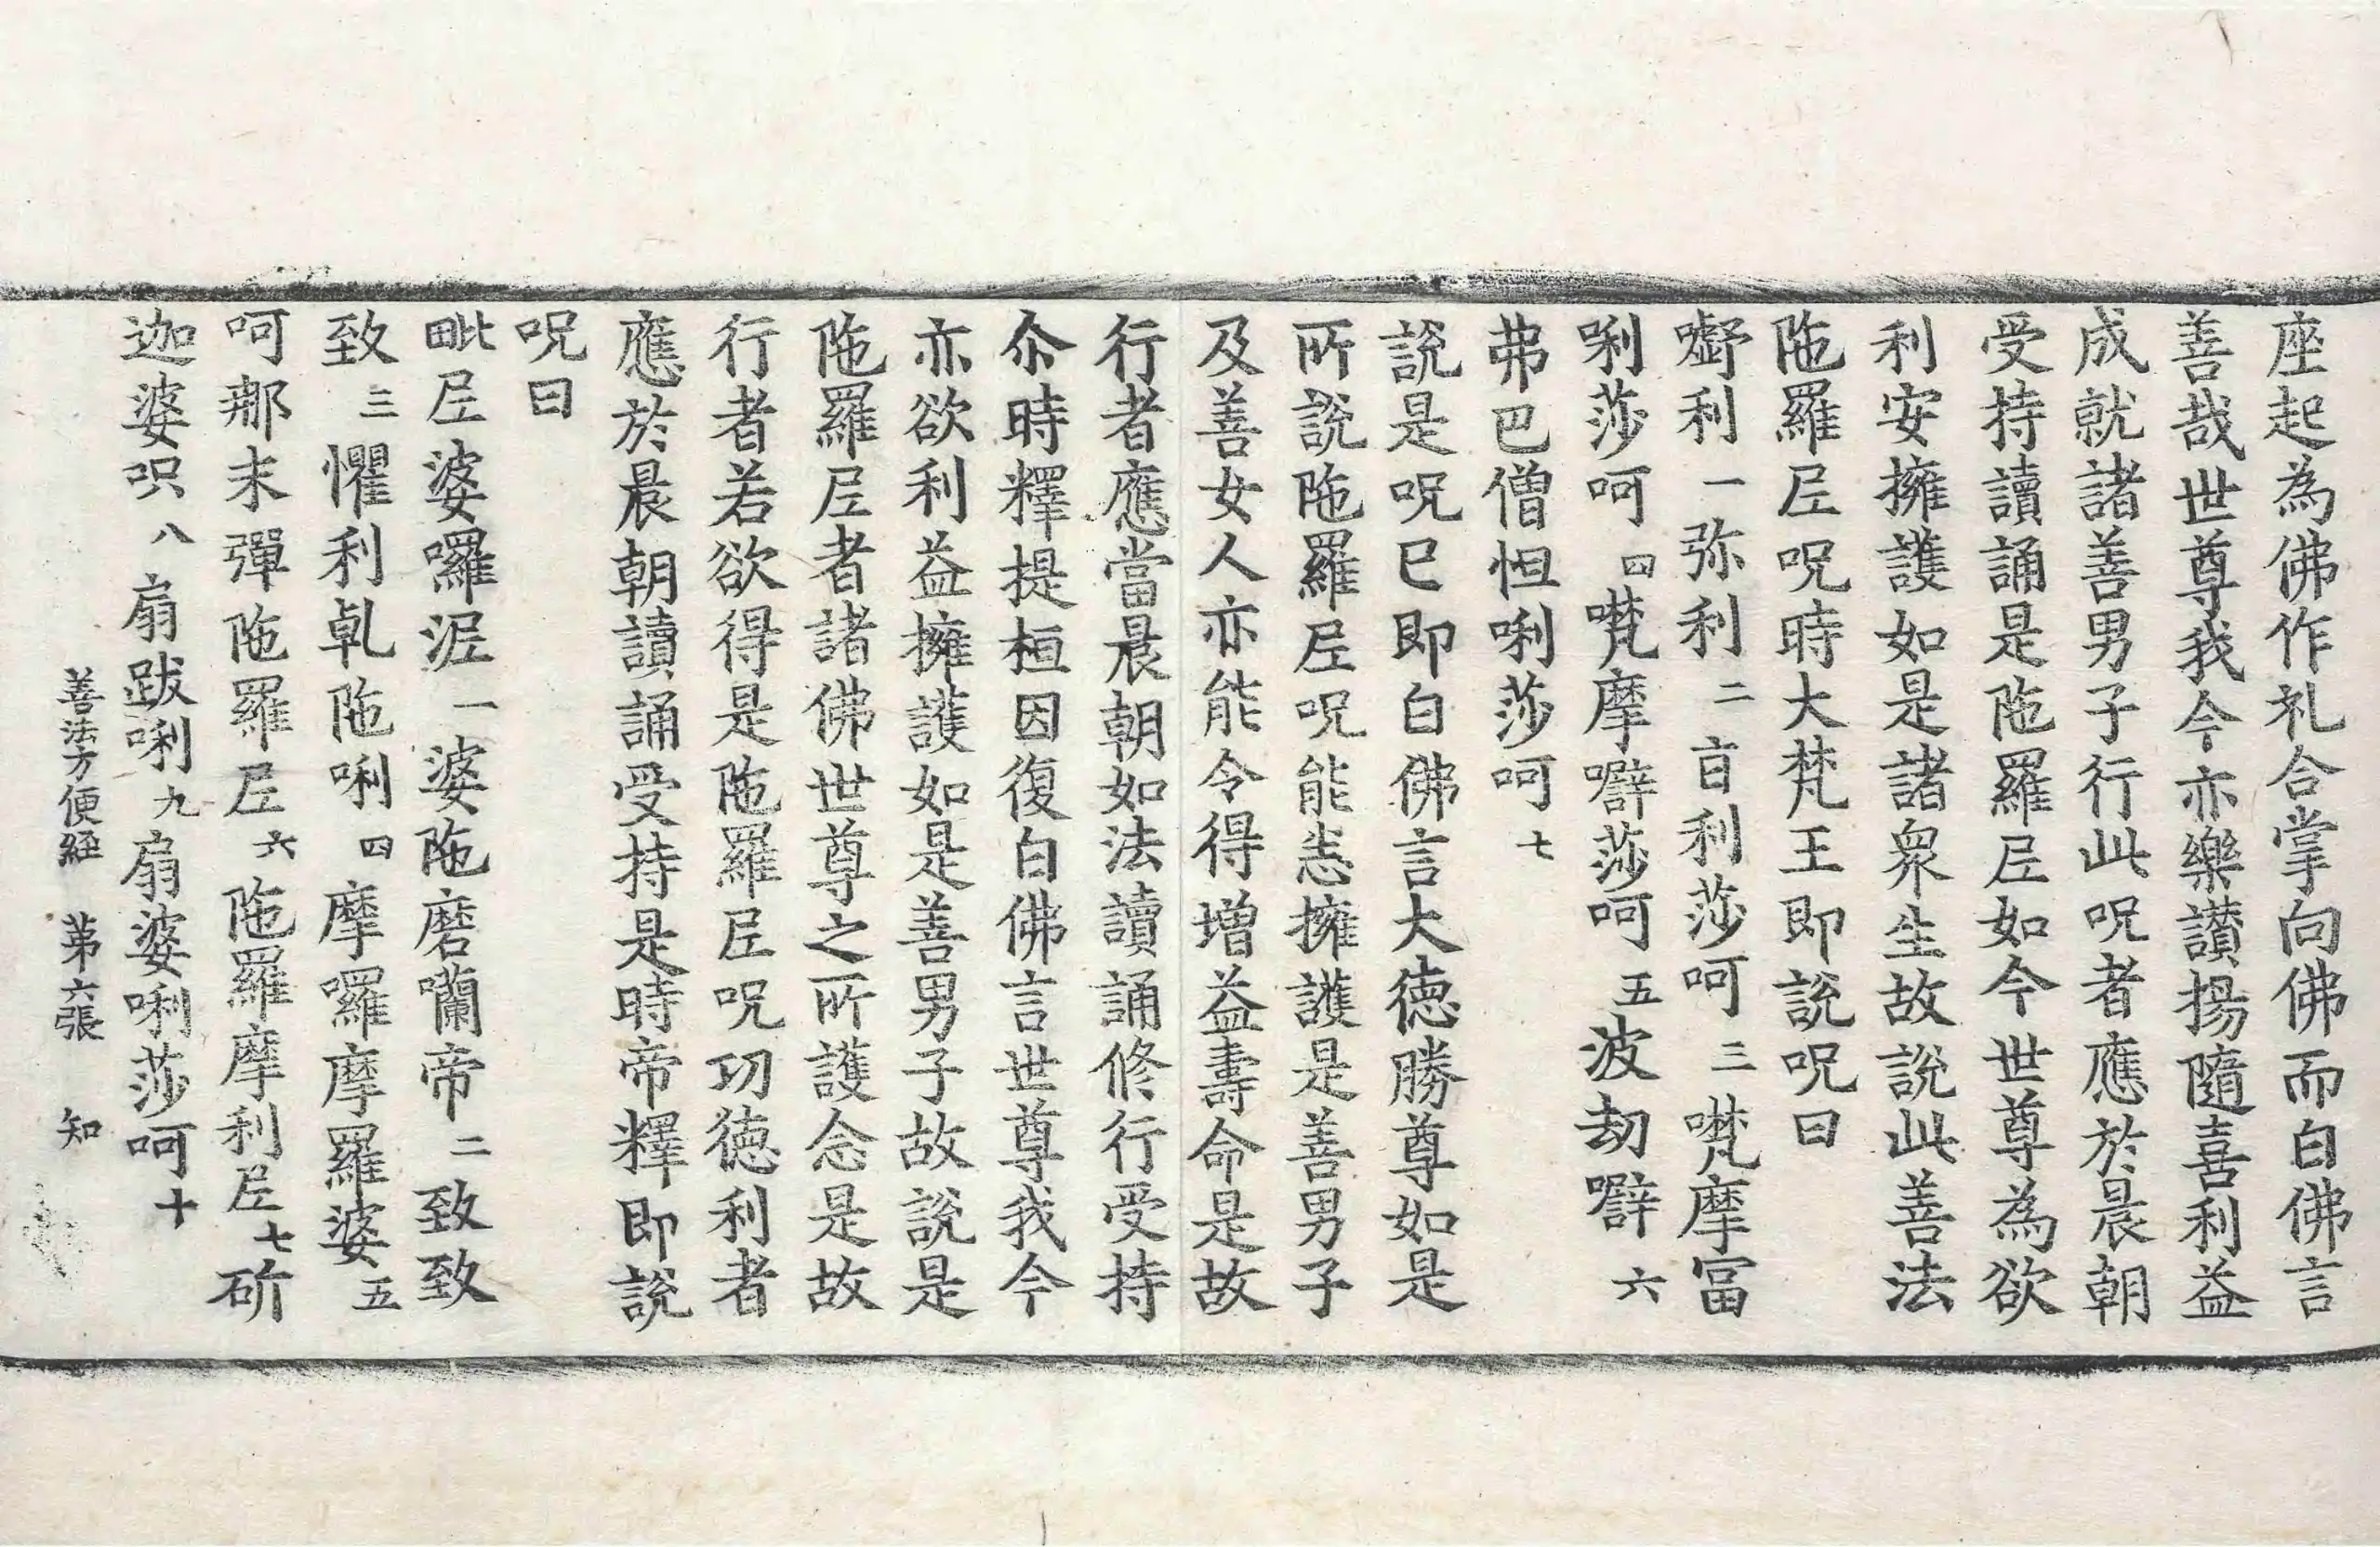 座起為佛作礼合掌向佛而白佛言
善哉世尊我今亦樂讃揚隨喜利益
成就諸善男子行此呪者應於晨朝
受持讀誦是陁羅𡰱如今世尊為欲
利安擁護如是諸衆生故說此善法
陁羅𡰱呪時大梵王即說呪曰
嚱利一弥利二㫖利莎呵三㘕摩富
唎莎呵四㘕摩噼莎呵五波劫噼六
弗巴僧怛唎莎呵七
說是呪已即白佛言大徳勝尊如是
所說陁羅𡰱呪能恚擁護是善男子
及善女人亦能令得増益壽命是故
行者應當晨朝如法讀誦修行受持
尒時釋提桓因復白佛言世尊我今
亦欲利益擁護如是善男子故說是
陁羅𡰱者諸佛世尊之所護念是故
行者若欲得是陁羅𡰱呪功徳利者
應於晨朝讀誦受持是時帝釋即說
呪曰
毗𡰱婆囉泥一婆陁磨囒帝二致致
致三懼利乹陁唎四摩囉摩羅婆五
呵那末彈陁羅𡰱六陁羅摩利𡰱七斫
迦婆呮八扇跋唎九扇婆唎莎呵十
善法方便經 苐六張 知